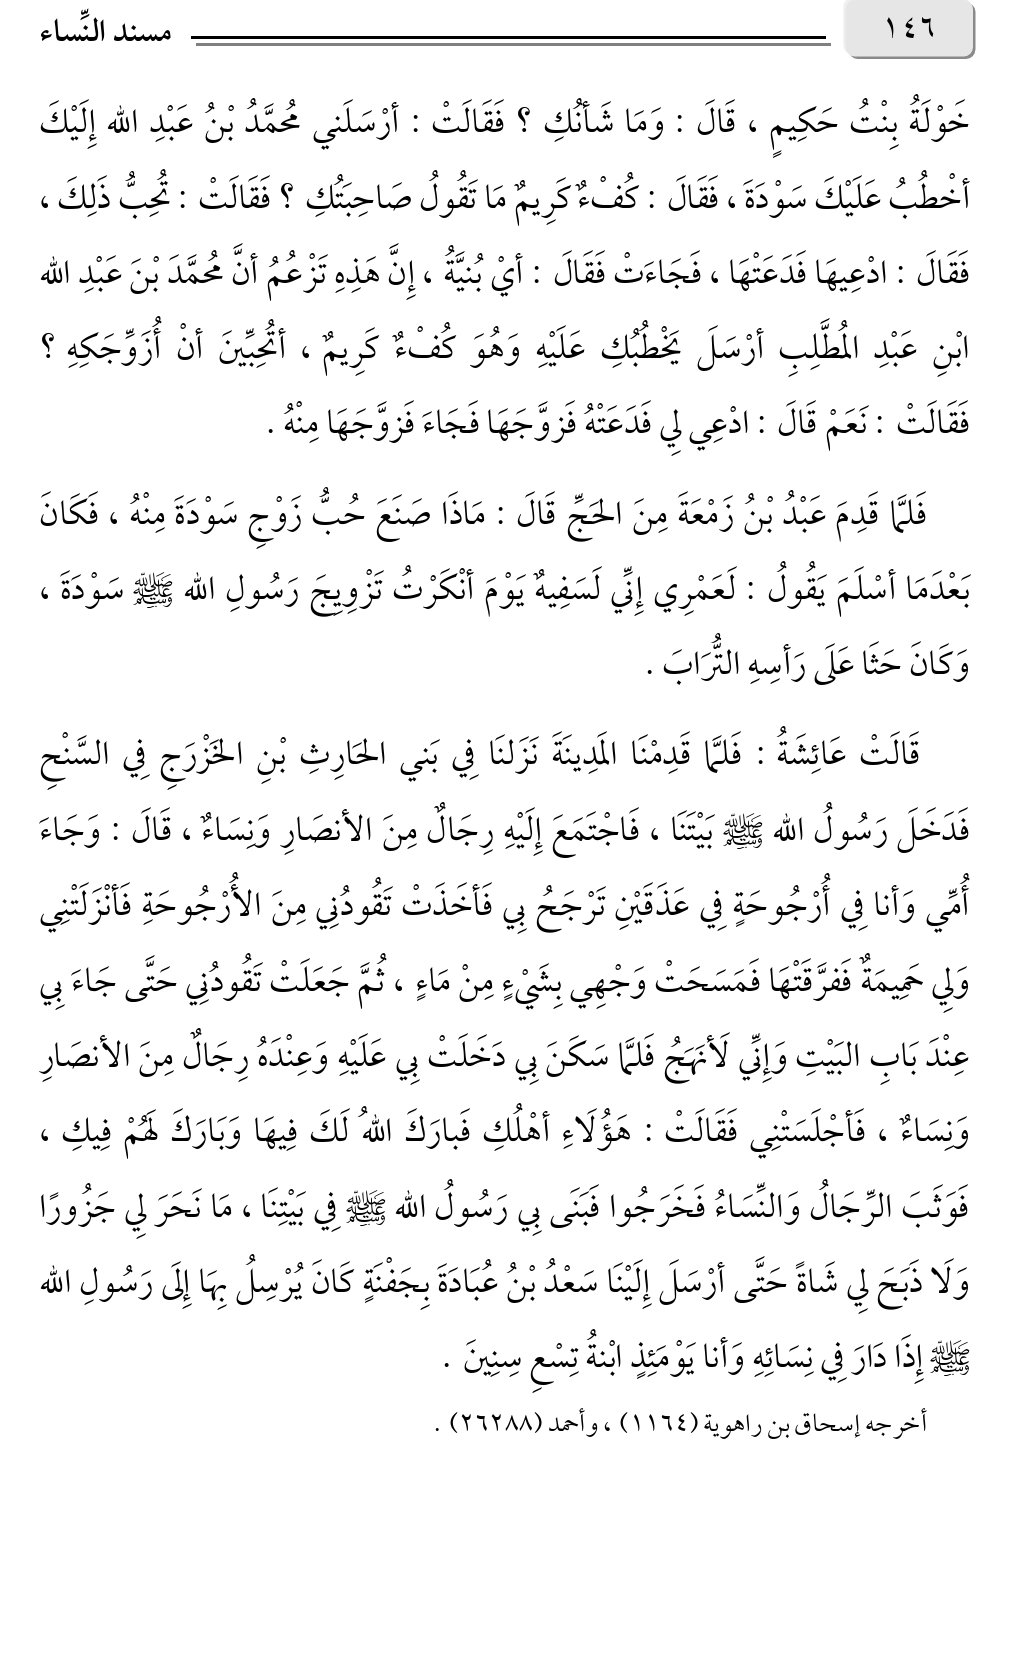 ١٤٦ مسند النِّساء
خَوْلَةُ بِنْتُ حَكِيمٍ ، قَالَ : وَمَا شَأنُكِ ؟ فَقَالَتْ : أرْسَلَني مُحمَّدُ بْنُ عَبْدِ الله إِلَيْكَ
أخْطُبُ عَلَيْكَ سَوْدَةَ ، فَقَالَ : كُفْءٌ كَرِيمٌ مَا تَقُولُ صَاحِبَتُكِ ؟ فَقَالَتْ : تُحِبُّ ذَلِكَ ،
فَقَالَ : ادْعِيهَا فَدَعَتْهَا ، فَجَاءَتْ فَقَالَ : أيْ بُنيَّةُ ، إِنَّ هَذِهِ تَزْعُمُ أنَّ مُحمَّدَ بْنَ عَبْدِ الله
ابْنِ عَبْدِ المُطَّلِبِ أرْسَلَ يَخْطُبُكِ عَلَيْهِ وَهُوَ كُفْءٌ كَرِيمٌ ، أتُحِبِّينَ أنْ أُزَوِّجَكِهِ ؟
فَقَالَتْ : نَعَمْ قَالَ : ادْعِي لِي فَدَعَتْهُ فَزوَّجَهَا فَجَاءَ فَزوَّجَهَا مِنْهُ .
فَلمَّا قَدِمَ عَبْدُ بْنُ زَمْعَةَ مِنَ الحَجِّ قَالَ : مَاذَا صَنَعَ حُبُّ زَوْجِ سَوْدَةَ مِنْهُ ، فَكَانَ
بَعْدَمَا أسْلَمَ يَقُولُ : لَعَمْرِي إِنِّي لَسَفِيهٌ يَوْمَ أنْكَرْتُ تَزْوِيجَ رَسُولِ الله ﷺ سَوْدَةَ ،
وَكَانَ حَثَا عَلَى رَأسِهِ التُّرَابَ .
قَالَتْ عَائِشَةُ : فَلمَّا قَدِمْنَا المَدِينَةَ نَزَلنَا فِي بَني الحَارِثِ بْنِ الخَزْرَجِ فِي السَّنْحِ
فَدَخَلَ رَسُولُ الله ﷺ بَيْتَنَا ، فَاجْتَمَعَ إِلَيْهِ رِجَالٌ مِنَ الأنصَارِ وَنِسَاءٌ ، قَالَ : وَجَاءَ
أُمِّي وَأنا فِي أُرْجُوحَةٍ فِي عَذَقَيْنِ تَرْجَحُ بِي فَأخَذَتْ تَقُودُنِي مِنَ الأُرْجُوحَةِ فَأنْزَلَتْنِي
وَلِي حَمِيمَةٌ فَفرَّقَتْهَا فَمَسَحَتْ وَجْهِي بِشَيْءٍ مِنْ مَاءٍ ، ثُمَّ جَعَلَتْ تَقُودُنِي حَتَّى جَاءَ بِي
عِنْدَ بَابِ البَيْتِ وَإِنِّي لَأنهَجُ فَلمَّا سَكَنَ بِي دَخَلَتْ بِي عَلَيْهِ وَعِنْدَهُ رِجَالٌ مِنَ الأنصَارِ
وَنِسَاءٌ ، فَأجْلَسَتْنِي فَقَالَتْ : هَؤُلَاءِ أهْلُكِ فَبارَكَ اللهُ لَكَ فِيهَا وَبَارَكَ لَهُمْ فِيكِ ،
فَوَثَبَ الرِّجَالُ وَالنِّسَاءُ فَخَرَجُوا فَبَنَى بِي رَسُولُ الله ﷺ فِي بَيْتِنَا ، مَا نَحَرَ لِي جَزُورًا
وَلَا ذَبَحَ لِي شَاةً حَتَّى أرْسَلَ إِلَيْنَا سَعْدُ بْنُ عُبَادَةَ بِجَفْنَةٍ كَانَ يُرْسِلُ بِهَا إِلَى رَسُولِ الله
ﷺ إِذَا دَارَ فِي نِسَائِهِ وَأنا يَوْمَئِذٍ ابْنةُ تِسْعِ سِنِينَ .
أخرجه إسحاق بن راهوية (١١٦٤) ، وأحمد (٢٦٢٨٨) .